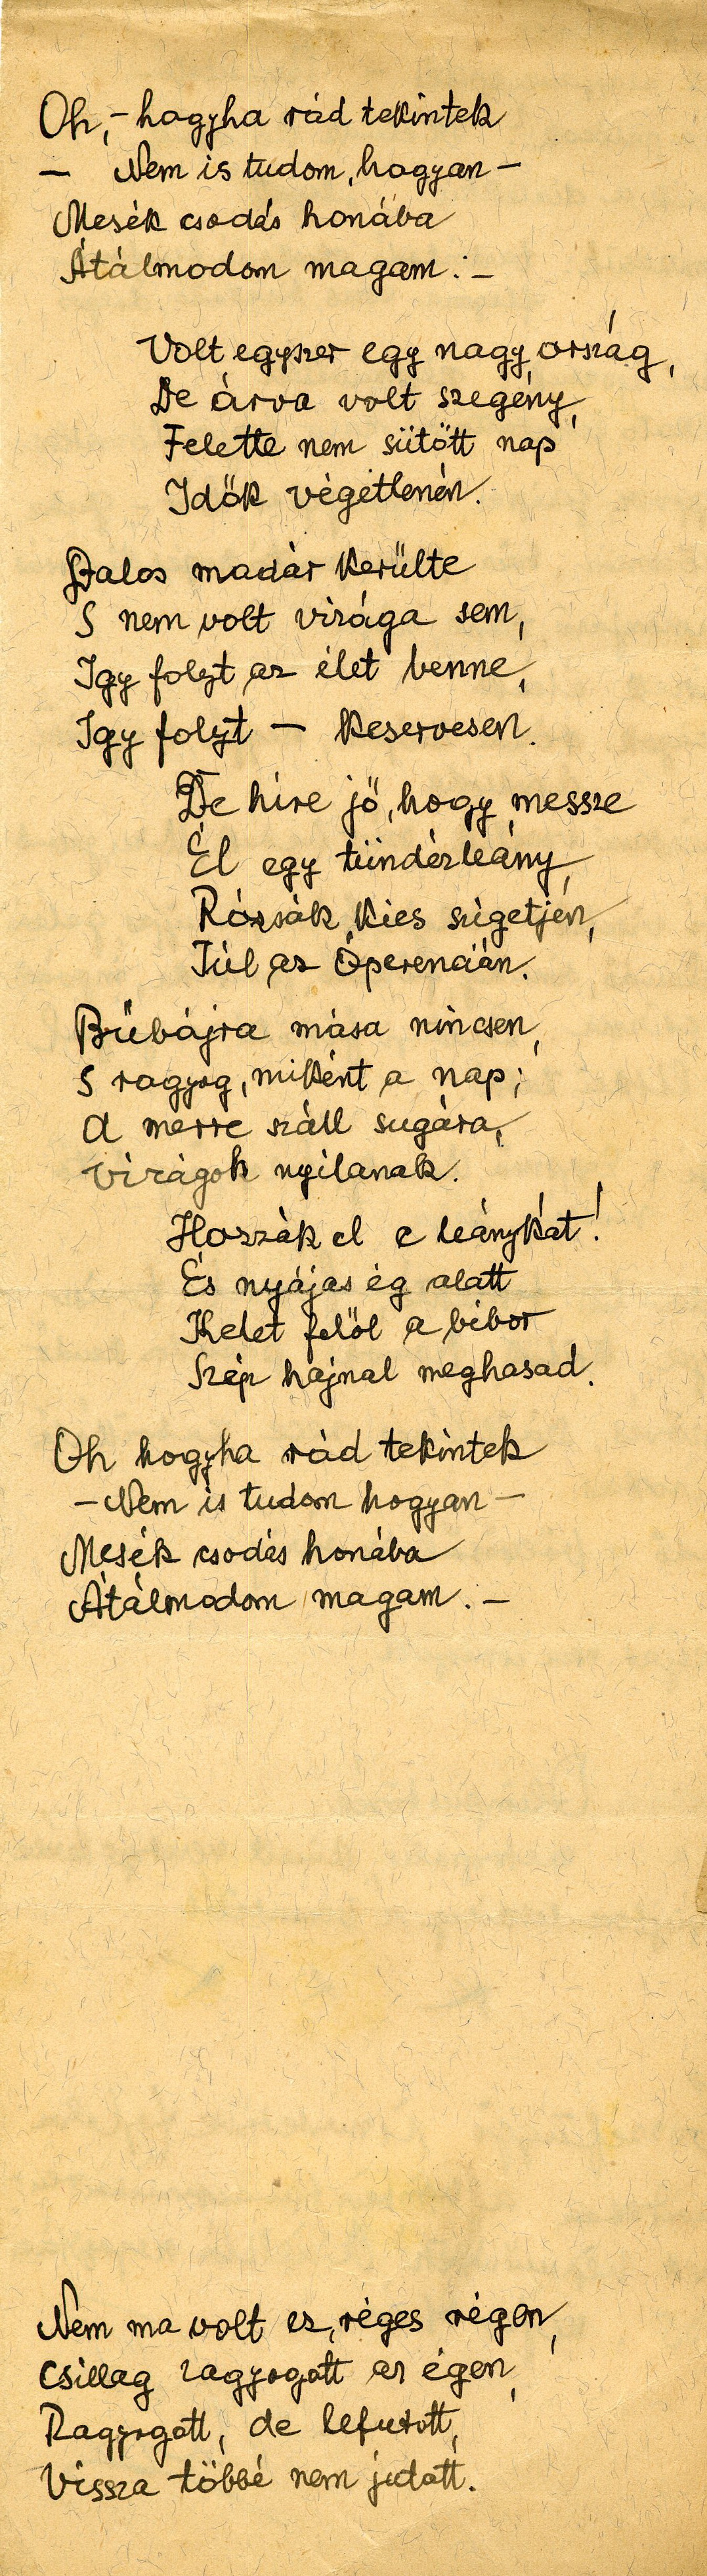 Oh, – hogyha rád tekintek
– Nem is tudom, hogyan –
Mesék csodás honába
Átálmodom magam : –
Volt egyszer egy nagy ország,
De árva volt szegény,
Felette nem sütött nap
Idők végetlenén.
Dalos madár kerülte
S nem volt virága sem,
Igy folyt az élet benne,
Igy folyt – keservesen.
De híre jő, hogy messze
Él egy tündérleány,
Rózsák kies szigetjén,
Túl az Óperencián.
Bűbájra mása nincsen,
S ragyog, miként a nap;
A merre száll sugára,
Virágok nyilanak.
Hozzák el e leánykát!
És nyájas ég alatt
Kelet felől a bibor
Szép hajnal meghasad.
Oh hogyha rád tekintek
– Nem is tudom hogyan –
Mesék csodás honába
Átálmodom magam. –
Nem ma volt ez, réges régen,
Csillag ragyogott az égen,
Ragyogott, de lefutott,
Vissza többé nem jutott.